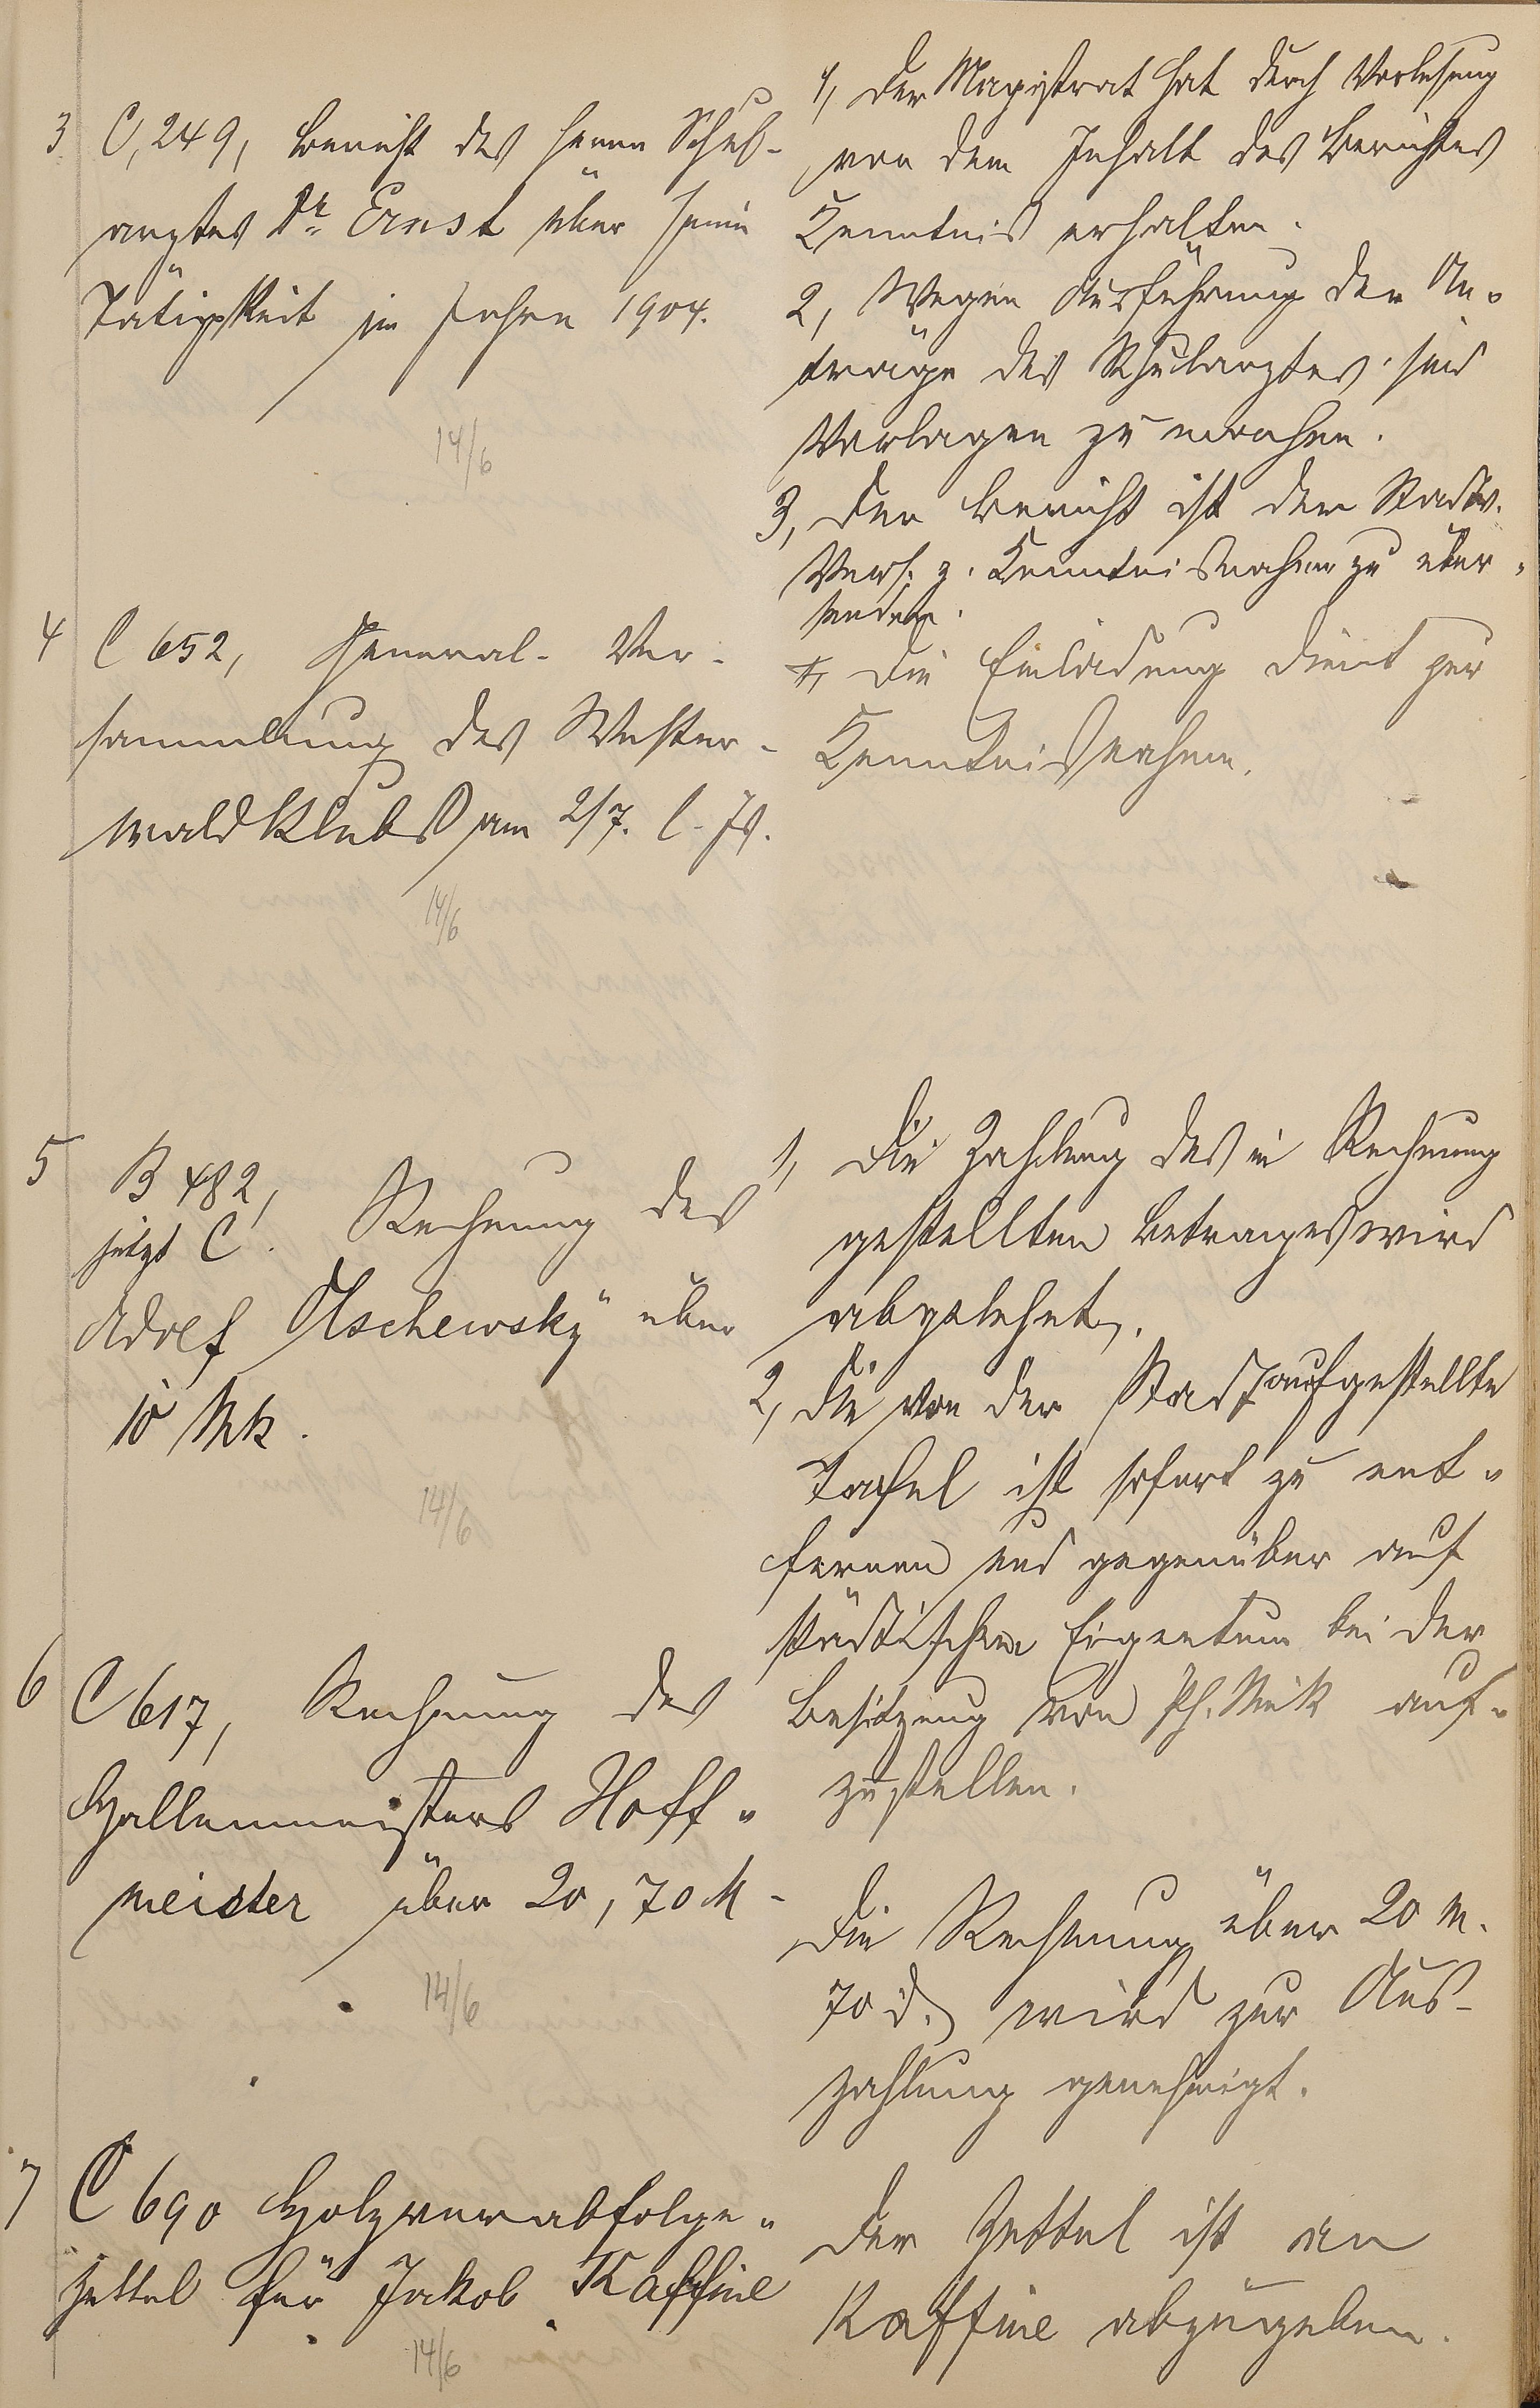 3 C, 249, Bericht des Herrn Schul-
arztes Dr. Ernst über seine
Tätigkeit im Jahre 1904.
14/6
1, Der Magistrat hat durch Vorlesung
von dem Inhalt des Berichtes
Kenntnis erhalten.
2, Wegen Ausführung der An-
träge des Schularztes sind
Vorlagen zu machen.
3, Der Bericht ist der Stadtv.
Vers. z. Kenntnisnahme zu über-
senden.
4 C 652, General-Ver-
sammlung des Wester-
wald Klubs am 2/7. l. Js.
14/6
Die Einladung dient zur
Kenntnisnahme.
5 B 482,
jetzt C. Rechnung des
Adolf Olschewsky über
10 Mk.
14/6
1, Die Zahlung des in Rechnung
gestellten Betrages wird
abgelehnt.
2, Die von der Stadt aufgestellte
Tafel ist sofort zu ent-
fernen und gegenüber auf
städtischem Eigentum bei der
Besitzung von Ph. auf-
zustellen.
6 C 617, Rechnung des
Hallenmeisters Hoff-
meister über 20,70 M
14/6
Die Rechnung über 20 M.
70 d. wird zur Aus-
zahlung genehmigt.
7 C 690 Holzverabfolge-
zettel für Jakob Kaffine
14/6
Der Zettel ist an
Kaffine abzugeben.